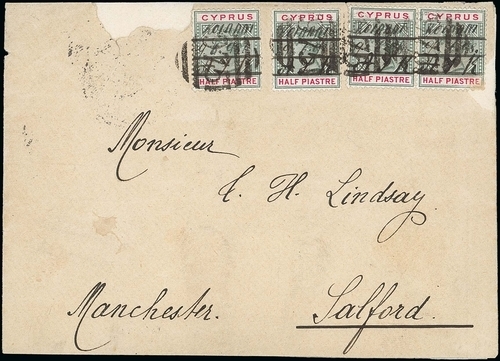 CYPRUS CYPRUS CYPRUS CYPRUS
HALF PIASTRE HALF PIASTRE HALF PIASTRE HALF PIASTRE
Monsieur
C. H. Lindsay
Manchester. Salford.